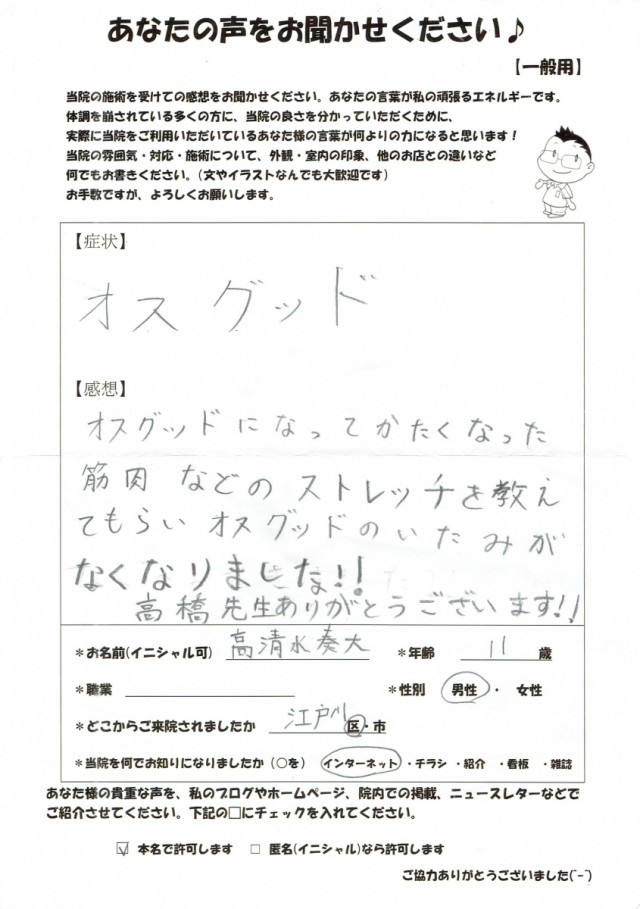 あなたの声をお聞かせください♪
【一般用】
当院の施術を受けての感想をお聞かせください。あなたの言葉が私の頑張るエネルギーです。
体調を崩されている多くの方に、当院の良さを分かっていただくために、
実際に当院をご利用いただいているあなた様の言葉が何よりの力になると思います！
当院の雰囲気・対応・施術について、外観・室内の印象、他のお店との違いなど
何でもお書きください。（文やイラストなんでも大歓迎です）
お手数ですが、よろしくお願いします。
【症状】
オスグッド
【感想】
オスグッドになってかたくなった
筋肉などのストレッチを教え
てもらいオスグッドのいたみが
なくなりました!!
高橋先生ありがとうございます!!
＊お名前(イニシャル可) 高清水奏大 ＊年齢 11 歳
＊職業 ＊性別 男性・女性
＊どこからご来院されましたか 江戸川区・市
＊当院を何でお知りになりましたか（○を） インターネット・チラシ・紹介・看板・雑誌
あなた様の貴重な声を、私のブログやホームページ、院内での掲載、ニュースレターなどで
ご紹介させてください。下記の□にチェックを入れてください。
☑ 本名で許可します □ 匿名(イニシャル)なら許可します
ご協力ありがとうございました(^-^)